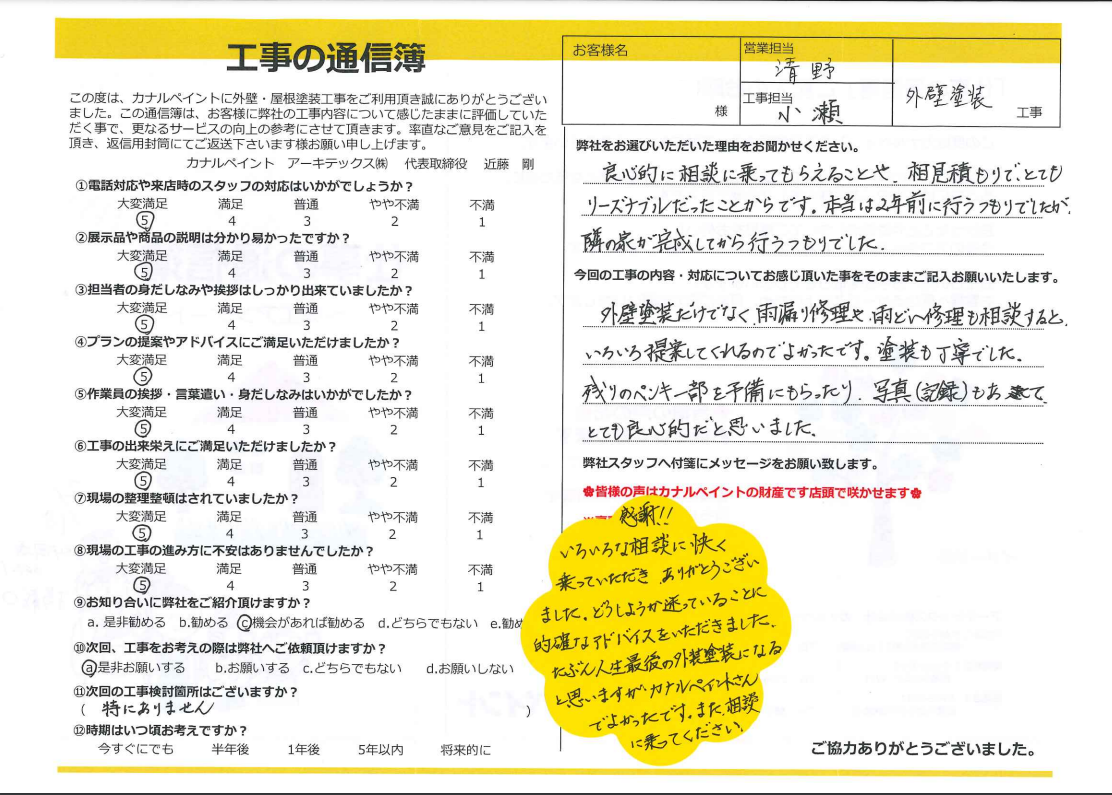 工事の通信簿
この度は、カナルペイントに外壁・屋根塗装工事をご利用頂き誠にありがとうござい
ました。この通信簿は、お客様に弊社の工事内容について感じたままに評価していた
だく事で、更なるサービスの向上の参考にさせて頂きます。率直なご意見をご記入を
頂き、返信用封筒にてご返送下さいます様お願い申し上げます。
カナルペイント アーキテックス㈱ 代表取締役 近藤 剛
①電話対応や来店時のスタッフの対応はいかがでしょうか？
大変満足 満足 普通 やや不満 不満
5 4 3 2 1
②展示品や商品の説明は分かり易かったですか？
大変満足 満足 普通 やや不満 不満
5 4 3 2 1
③担当者の身だしなみや挨拶はしっかり出来ていましたか？
大変満足 満足 普通 やや不満 不満
5 4 3 2 1
④プランの提案やアドバイスにご満足いただけましたか？
大変満足 満足 普通 やや不満 不満
5 4 3 2 1
⑤作業員の挨拶・言葉遣い・身だしなみはいかがでしたか？
大変満足 満足 普通 やや不満 不満
5 4 3 2 1
⑥工事の出来栄えにご満足いただけましたか？
大変満足 満足 普通 やや不満 不満
5 4 3 2 1
⑦現場の整理整頓はされていましたか？
大変満足 満足 普通 やや不満 不満
5 4 3 2 1
⑧現場の工事の進み方に不安はありませんでしたか？
大変満足 満足 普通 やや不満 不満
5 4 3 2 1
⑨お知り合いに弊社をご紹介頂けますか？
a. 是非勧める b.勧める c機会があれば勧める d.どちらでもない e.勧め
⑩次回、工事をお考えの際は弊社へご依頼頂けますか？
a是非お願いする b.お願いする c.どちらでもない d.お願いしない
⑪次回の工事検討箇所はございますか？
( 特にありません )
⑫時期はいつ頃お考えですか？
今すぐにでも 半年後 1年後 5年以内 将来的に
お客様名
様
営業担当
清野
工事担当
小瀬
外壁塗装
工事
弊社をお選びいただいた理由をお聞かせください。
良心的に相談に乗ってもらえることや、相見積もりで、とても
リーズナブルだったことからです。本当は2年前に行うつもりでしたが、
隣の家が完成してから行うつもりでした。
今回の工事の内容・対応についてお感じ頂いた事をそのままご記入お願いいたします。
外壁塗装だけでなく、雨漏り修理や、雨どい修理も相談すると、
いろいろ提案してくれるのでよかったです。塗装も丁寧でした。
残りのペンキ一部を予備にもらったり、写真(記録)もあって
とても良心的だと思いました。
弊社スタッフへ付箋にメッセージをお願い致します。
✿皆様の声はカナルペイントの財産です店頭で咲かせます✿
感謝!!
いろいろな相談に快く
乗っていただき ありがとうござい
ました。どうしようか迷っていることに
的確なアドバイスをいただきました。
たぶん人生最後の外装塗装になる
と思いますが、カナルペイントさん
でよかったです。また、相談
に乗ってください。
ご協力ありがとうございました。